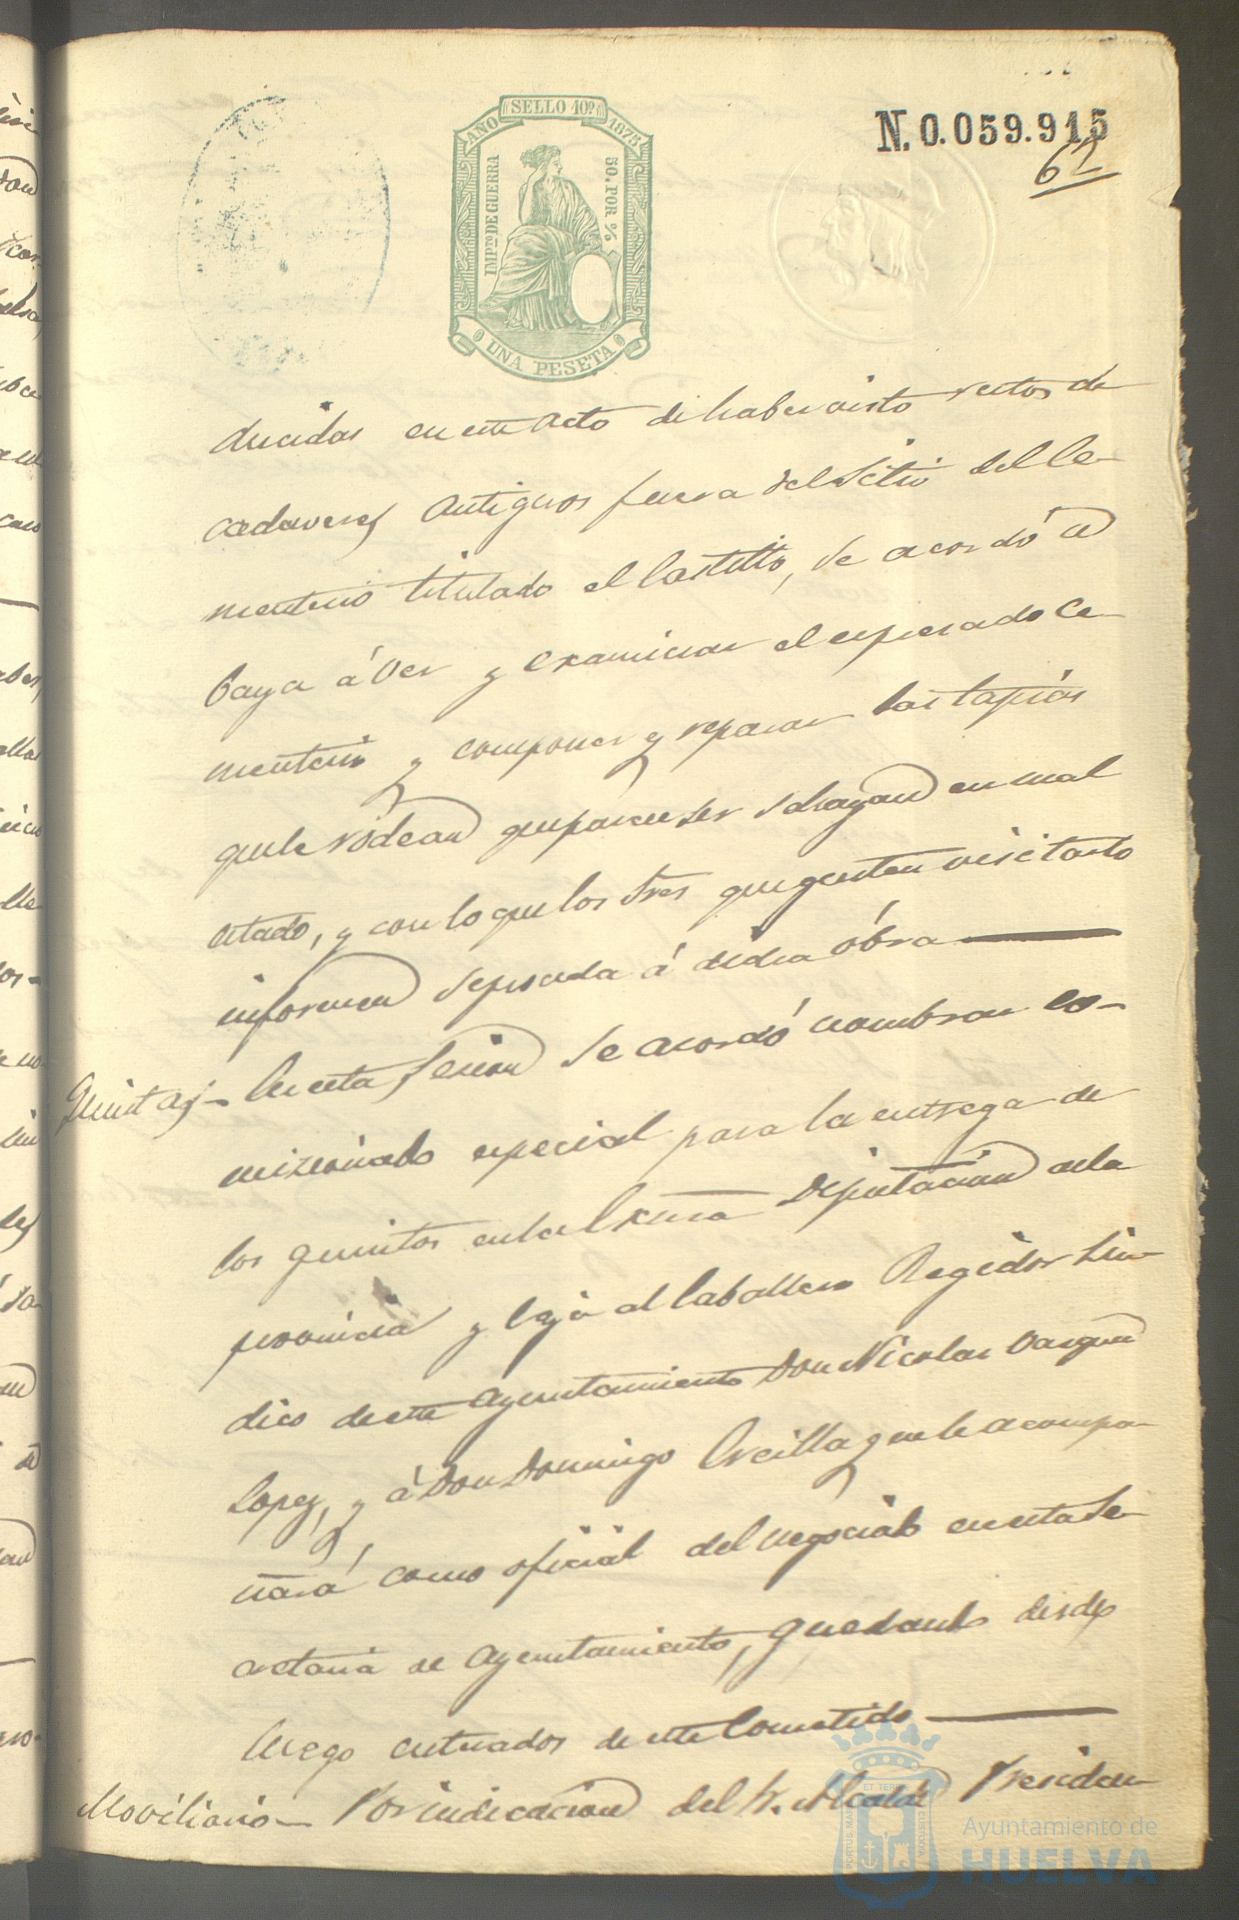 AÑO SELLO 10º 1875
IMPTO DE GUERRA 50. POR %
UNA PESETA
N. 0.059.915
62
ducidas en este acto de haber visto restos de
cadaveres antiguos fuera del Sitio del Ce-
menterio titulado el Castillo, se acordó a
baya á ver y examinar el espresado Ce
menterio y componer y reparar las tapias
que le rodean que parece ser se hayan en mal
estado, y con lo que los Tres que gusten visitarlo
informen se proceda á dicha óbra
Quintas - En esta Sesion se acordó nombrar co-
misionado especial para la entrega de
los quintos en la Excma Diputacion de la
provincia y lo es el Caballero Regidor Sin-
dico de este Ayuntamiento Don Nicolas Vazquez
Lopez, y á Don Domingo Arcilla que le acompa-
ñará como oficial del negociado en esta Se
cretaria de Ayuntamiento, quedando desde
luego enterados de este Cometido
Moviliario - Por indicacion del Sr. Alcalde Presiden
Ayuntamiento de
HUELVA